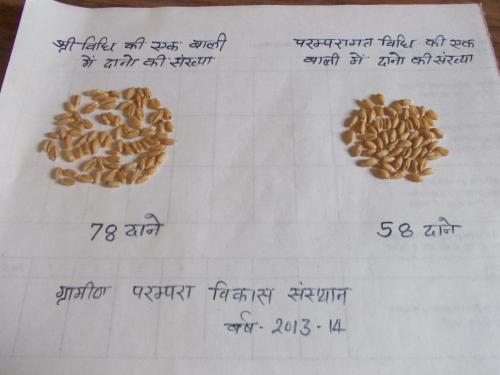 श्री विधि की एक बाली
में दानो की संख्या
परम्परागत विधि की एक
बाली में दानो की संख्या
78 दाने
58 दाने
ग्रामीण परम्परा विकास संस्थान
वर्ष - 2013 - 14